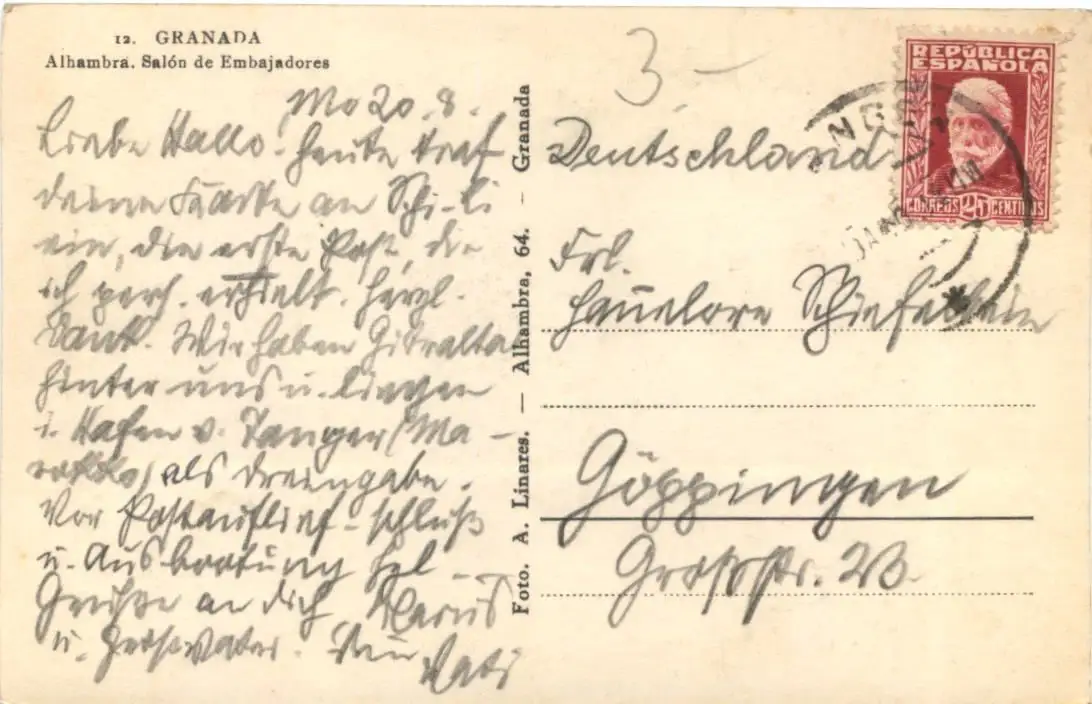 12. GRANADA
Alhambra. Salón de Embajadores
Mo 20. 8.
Liebe Hallo. heute traf
deine Karte an Schi-
ein, die erste Post, die
ich pers. erhielt. Herzl.
Dank. Wir haben Gibraltar
hinter uns u. liegen
i. Hafen v. Tanger (Ma-
rokko) als Dreingabe.
Vor Postauflief-schluß
u. Ausbootung
Grüße an dich,
u. Grossvater. Dein
Vati
Foto. A. Linares. — Alhambra, 64. - Granada
3 –
REPÚBLICA
ESPAÑOLA
CORREOS 25 CENTIMOS
Deutschland
Frl.
Hannelore
Göppingen